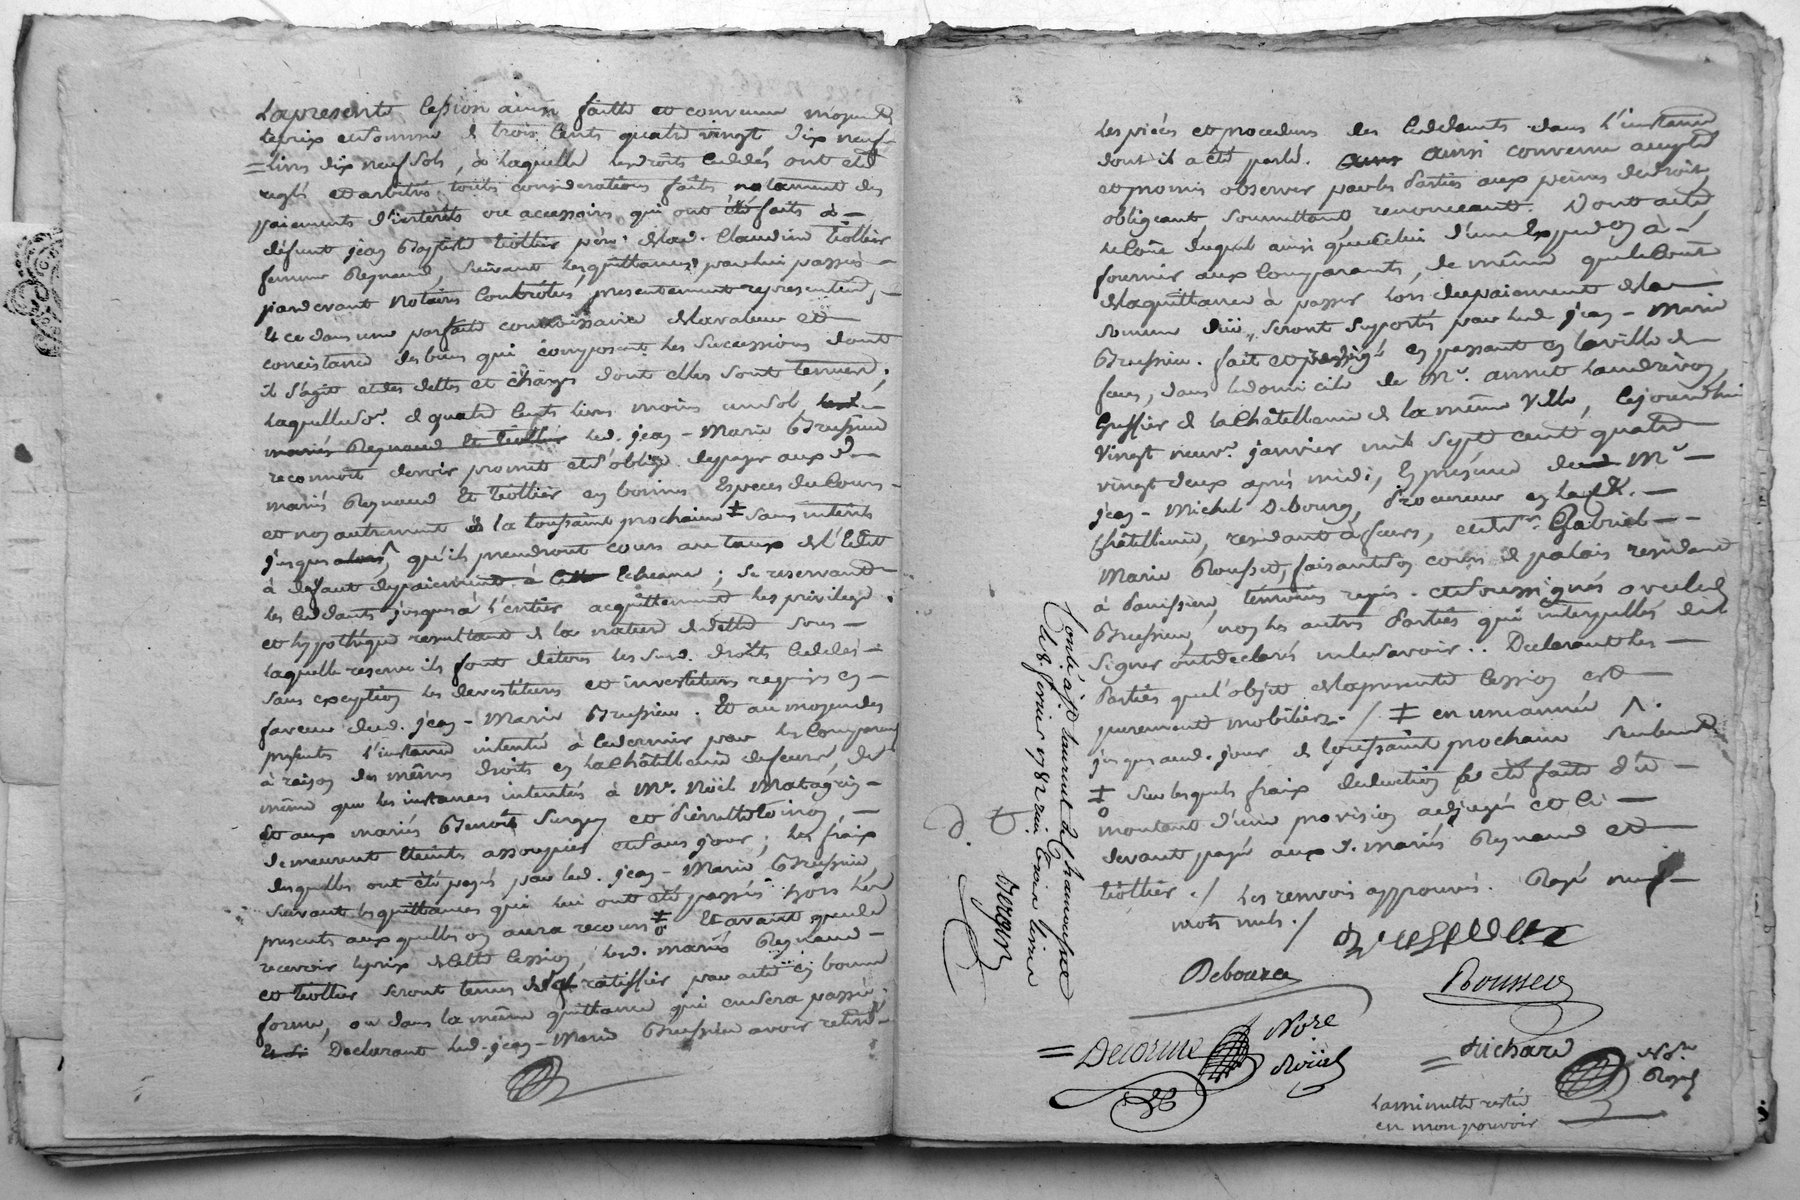 La presente Cession ainsi faitte et convenue moyennt
le prix et somme de trois Cents quatre vingt dix neuf
= livres dix neuf sols, à laquelle les droits Cedés ont été
reglés et arbitrés, toutes considerations faites notament des
paiements d'interêts ou accessoires qui ont été faits à
défunt jean Baptiste tiollier pere de lad. Claudine tiollier
femme Reynaud, suivant les quittances par lui passées
pardevant Notaires Controlées presentement representées,
& ce dans une parfaite connoissance de la valeur et
consistance des biens qui composent les successions dont
il s'agit et des dettes et charges dont elles sont tenues;
laquelle so.e de quatre Cents livres moins un sol
mariés Reynaud et tiollier led. jean-Marie Brussieu
reconnoit devoir promet et s'oblige de payer aux d.
mariés Reynaud Et tiollier en bonnes Especes du Cours
et non autrement à la toussaint prochaine ‡ sans interêts
jusques alors ^, qu'ils prendront cours au taux de l'Edit
à defaut de paiement à cette Echeance; se reservant
les Cedants jusques à l'entier acquittement les privilege
et hypothèque resultant de la nature de dette sous
laquelle reserve ils font de tous les susd. droits Cedés
sans exception les devestitures et investitures requises en
faveur dud. jean-Marie Brussieu. Et au moyen des
presents l'instance intentée à ce dernier par les Comparants
à raison des mêmes droits en la Châtellenie de feurs, de
même que les instances intentées à Mr. Noël Matagrin
Et aux mariés Benoit Surgey et Pierrette
demeurent Eteintes assoupies et sans jour; les fraix
desquelles ont été payés par led. jean-Marie Brussieu
suivant les quittances qui lui ont été passés hors des
presents auxquelles on aura recours ‡ Et avant que de
recevoir le prix de cette Cession, led. mariés Reynaud
et tiollier seront tenus de ratiffier par acte en bonne
forme, ou dans la même quittance qui en sera passée.
Declarant led. jean-Marie Brussieu avoir retiré
les piéces et procedures des Cedants dans l'instance
dont il a été parlé. ainsi convenu accepté
et promis observer par les Parties aux peines de droit,
obligeant soumettant renonceant. Dont acte
le Coût duquel ainsi que Celui d'une Expedon à
fournir aux Comparants, de même que le Coût
de la quittance à passer lors du paiement de la
somme düe, seront suportés par led. jean-Marie
Brussieu. fait et passé en passant en la ville de
feurs, dans le domicile de Mr. annet Laudrévon,
Greffier de la Châtellenie de la même Ville, Cejourdhui
Vingt neuv.e janvier mil sept cent quatre
vingt deux après midi, En presence de Mr.
jean-Michel Debourg, Procureur en lad.
Châtellenie, residant à feurs, et de Sr. Gabriel
Marie Rousset, faisant en cour de palais residant
à Panissiere, témoins requis. et soussignés avec led.
Brussieu, non les autres Parties qui interpellés de
signer ont declarés ne le savoir.. Declarant les
Parties que l'objet de la presente Cession est
purement mobilier. / ‡ en une année ^.
jusques aud. jour de toussaint prochaine seulement
‡ sur lesquels fraix deduction a été faite du
montant d'une provision adjugée et ci
devant payée aux d. mariés Reynaud et
tiollier ./ les renvois approuvés. Rayé neuf
mots nuls ./
Debourg
Rousset
= Delorme
Nore
Roïal
= Richard
Nre
Royal
La minutte restée
en mon pouvoir
Conlé à St. Laurent de Chamousset
le 8. fevrier 1782 reçu trois livres
Berger